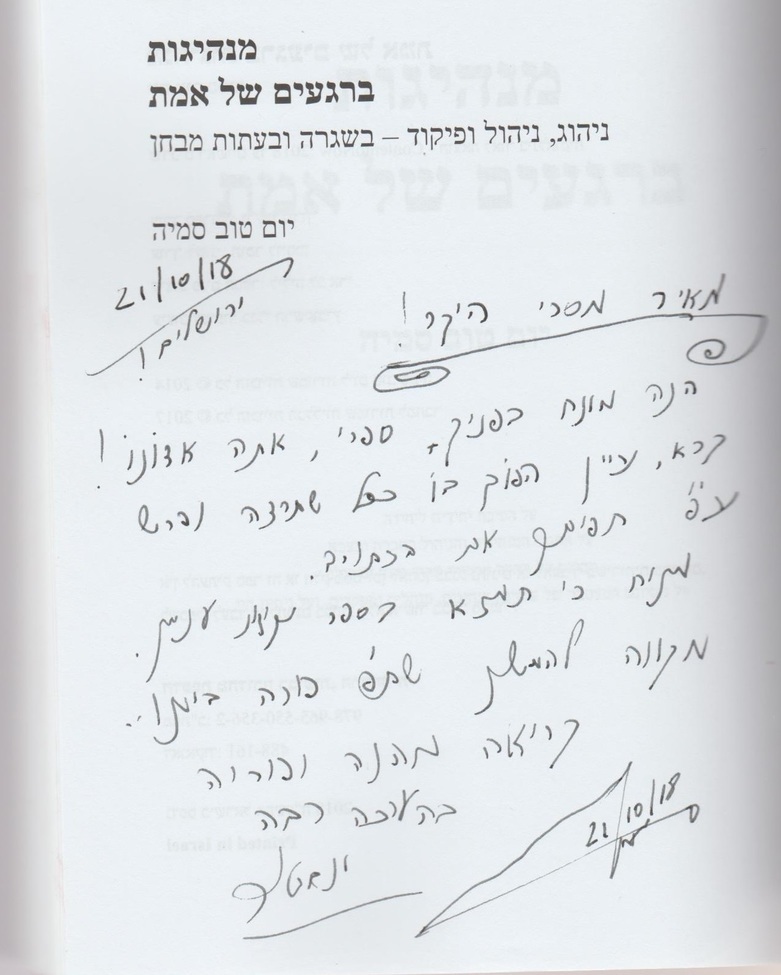 מנהיגות
ברגעים של אמת
ניהוג, ניהול ופיקוד – בשגרה ובעתות מבחן
יום טוב סמיה
21/10/18
ירושלים!
מאיר מסרי היקר!
הנה מונח בפניך ספרי, אתה אדונו!
קרא, עיין הפוך בו ככל שתרצה ופרש
עפ"י תפיסתך את הכתוב.
מניח כי תמצא בספר עניין.
מקווה להמשך שת"פ פורה בינינו.
קריאה מהנה ופוריה
בהערכה רבה
21/10/18